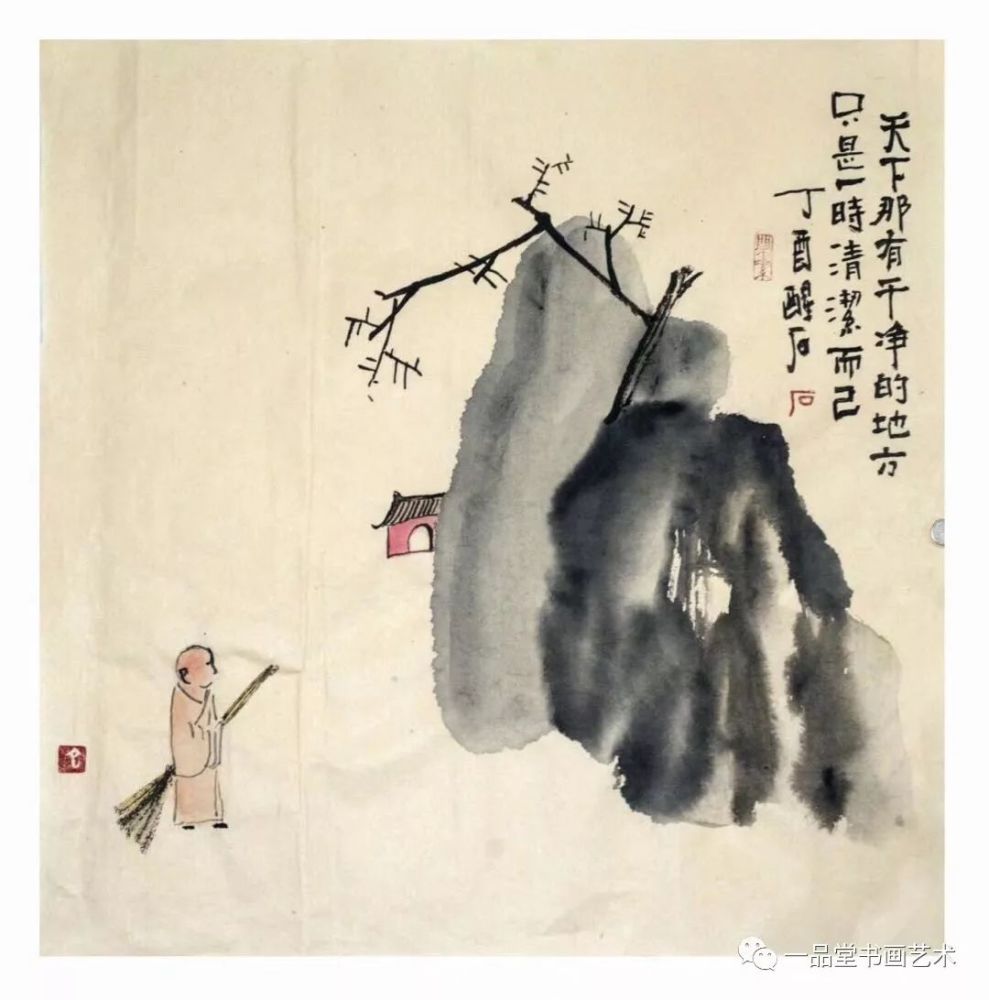 天下那有干净的地方
只是一時清潔而已
丁酉醒石
石
一品堂书画艺术